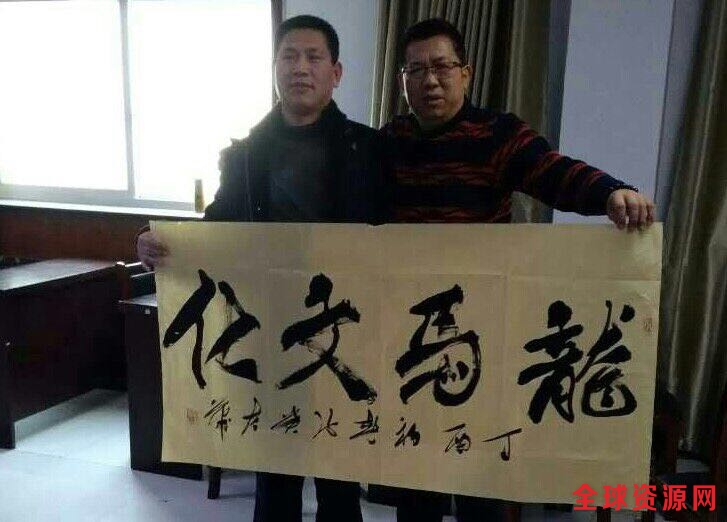 龍馬文化
丁酉初
全球资源网